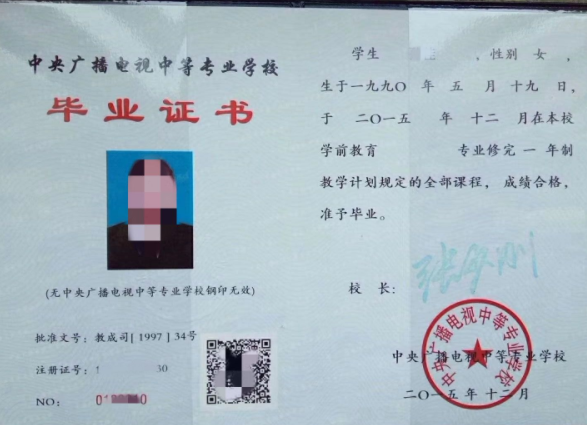 中央广播电视中等专业学校
毕业证书
(无中央广播电视中等专业学校钢印无效)
批准文号: 教成司[1997]34号
注册证号: 1 30
NO: 01 0
学生 , 性别 女 ,
生于一九九〇 年 五 月 十九 日,
于 二〇一五 年 十二 月在本校
学前教育 专业修完 一 年制
教学计划规定的全部课程, 成绩合格,
准予毕业。
校 长:
中央广播电视中等专业学校
中央广播电视中等专业学校
二〇一五年 十二月